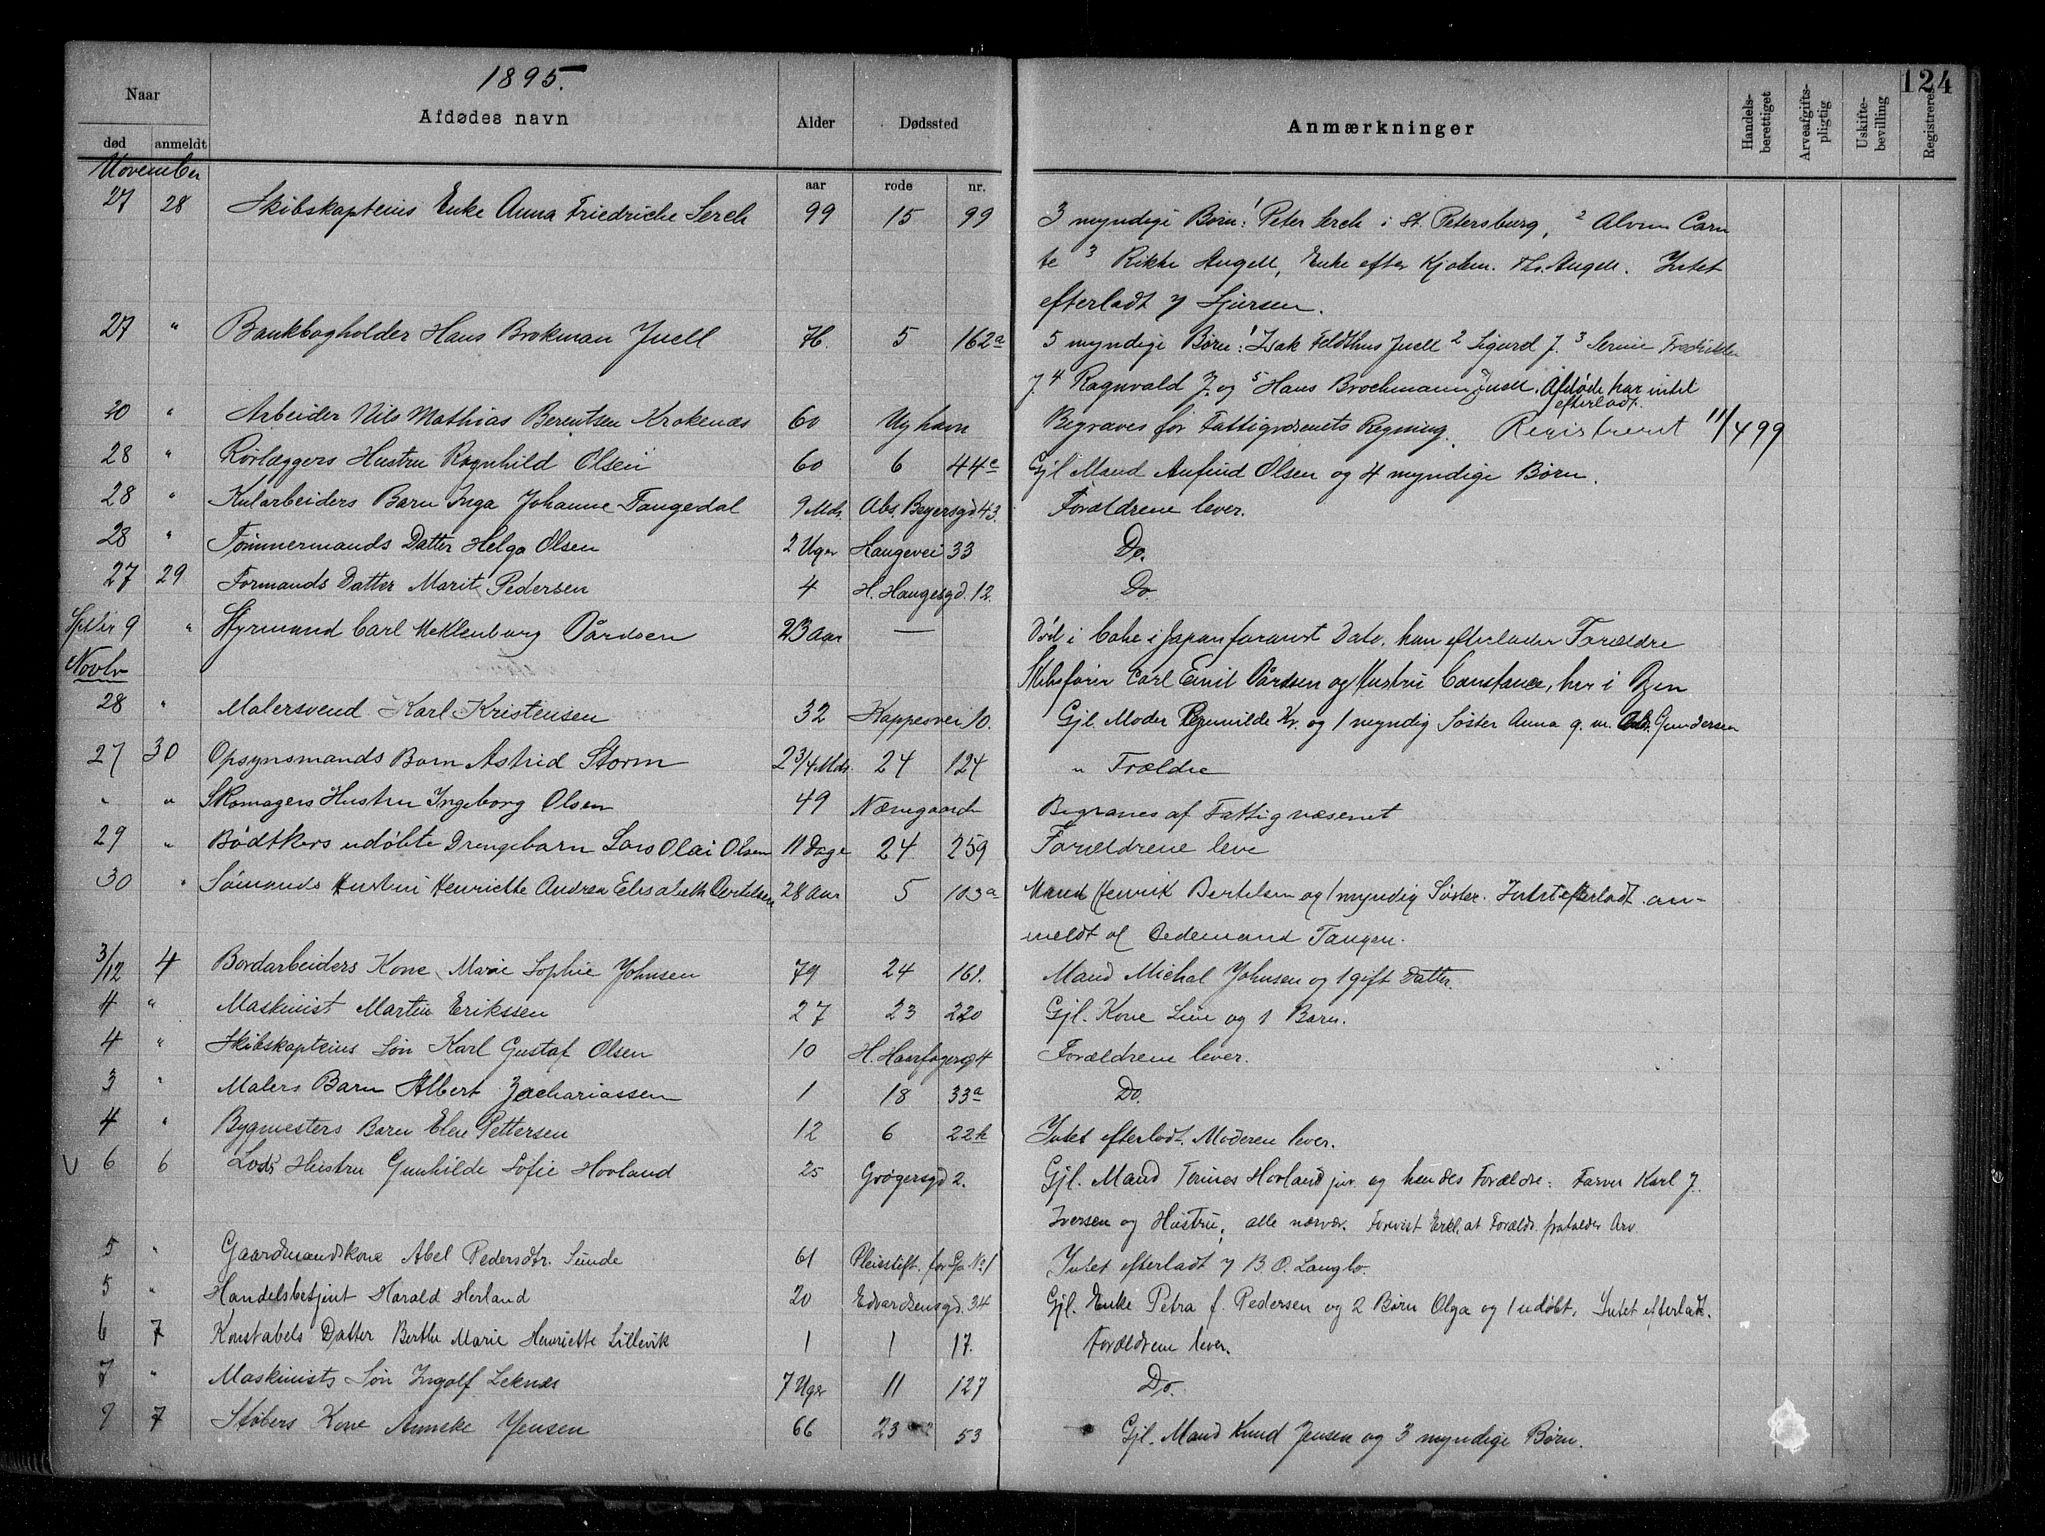 124
1895.
Naar
Afdødes navn
Alder
Dødssted
Anmærkninger
Handels-berettiget
Arveafgifts-pligtig
Uskifte-bevilling
Registreret
død anmeldt
November
aar rode nr.
27 28 Skibskapteins Enke Anna Friedriche Lerch 99 15 99 3 myndige Børn: 1 Peter Lerch i St. Petersburg, 2 Alvine Carn
te 3 Rikke Angell, Enke efter Kjøbm. Th. Angell. Intet
efterladt
27 " Bankbogholder Hans Brokman Juell 76. 5 162a 5 myndige Børn: 1 Isak Feldthus Juell 2 Sigurd J. 3 Fredrikke
J. 4 Ragnvald J. og 5 Hans Brochmann Juell. Afdøde har intet
efterladt.
20 " Arbeider Nils Mathias Berentsen Krokenæs 60 Nyhavn Begraves for Fattigvæsenets Regning. Registreret 11/4 99
28 " Rørlæggers Hustru Ragnhild Olsen 60 6 44c Gjl. Mand Anfind Olsen og 4 myndige Børn.
28 " Kularbeiders Barn Inga Johanne Tangedal 9 Mdr. Abs. Beyersgd. 43. Forældrene lever.
28 " Tømmermands Datter Helga Olsen 2 Uger Haugevei 33 Do.
27 29 Formands Datter Marit Pedersen 4 H. Haugesgd. 12. Do
Septbr 9 " Styrmand Carl Meklenborg Pårdsen 23 Aar — Død i Cobe i Japan foranst. Dato, han efterlader Forældre
Novbr Skibsfører Carl Emil Pårdsen og Hustru Constance, her i Byen
28 " Malersvend Karl Kristensen 32 Kappesvei 10. Gjl. Moder Kr. og 1 myndig Søster Anna g. m. Gundersen
27 30 Opsynsmands Barn Astrid Storm 2 3/4 Mdr. 24 124 " Forældre
" " Skomagers Hustru Ingeborg Olsen 49 Begraves af Fattigvæsenet
29 " Bødtkers udøbte Drengebarn Lars Olai Olsen 11 Dage 24 259 Forældrene leve
30 " Sømands Hustru Henriette Andrea Elisabeth Bertelsen 28 Aar 5 103a Mand Henrik Bertelsen og 1 myndig Søster. Intet efterladt. an-
meldt af Bedemand Tangen.
3/12 4 Bordarbeiders Kone Marie Sophie Johnsen 79 24 161. Mand Michal Johnsen og 1 gift Datter.
4 " Maskinist Martin Erikssen 27 23 220 Gjl. Kone Line og 1 Barn.
4 " Skibskapteins Søn Karl Gustaf Olsen 10 H. Haarfagersg 4 Forældrene lever.
3 " Malers Barn Albert Zachariassen 1 18 33a Do.
4 " Bygmesters Barn Elen Pettersen 12 6 22k Intet efterladt. Moderen lever.
V 6 6 Lods Hustru Gunhilde Sofie Hovland 25 Grøgersgd 2. Gjl. Mand Tønnes Hovland jur. og hendes Forældre: Farver Karl J.
Iversen og Hustru, alle nærvær. Forevist Erkl. at Forældr. frafalder Arv
5 " Gaardmandskone Abel Pedersdtr. Sunde 61 Pleiestift. for Sp No 1 Intet efterladt B. O. Langlo.
5 " Handelsbetjent Harald Horland 20 Edvardsensgd. 34 Gjl. Enke Petra f. Pedersen og 2 Børn Olga og 1 udøbt. Intet efterladt.
6 7 Konstabels Datter Berthe Marie Henriette Lillevik 1 1 17. Forældrene lever.
7 " Maskinists Søn Ingolf Leknæs 7 Uger 11 127 Do.
7 7 Støbers Kone Anneke Jensen 66 23 53 Gjl. Mand Knud Jensen og 3 myndige Børn.